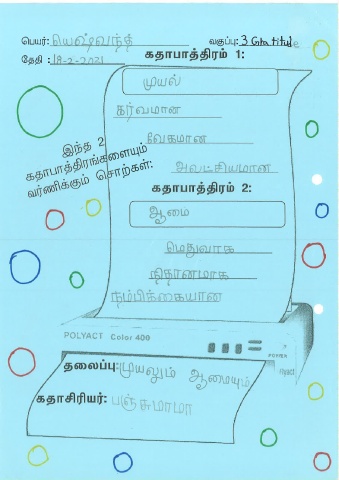 பெயர்: யெஷ்வந்த் வகுப்பு: 3 Gratitude
தேதி : 18-2-2021
கதாபாத்திரம் 1:
முயல்
கர்வமான
வேகமான
அலட்சியமான
இந்த 2
கதாபாத்திரங்களையும்
வர்ணிக்கும் சொற்கள்:
கதாபாத்திரம் 2:
ஆமை
மெதுவாக
நிதானமாக
நம்பிக்கையான
POLYACT Color 400
POWER
தலைப்பு: முயலும் ஆமையும்
கதாசிரியர்: பஞ்சுமாமா